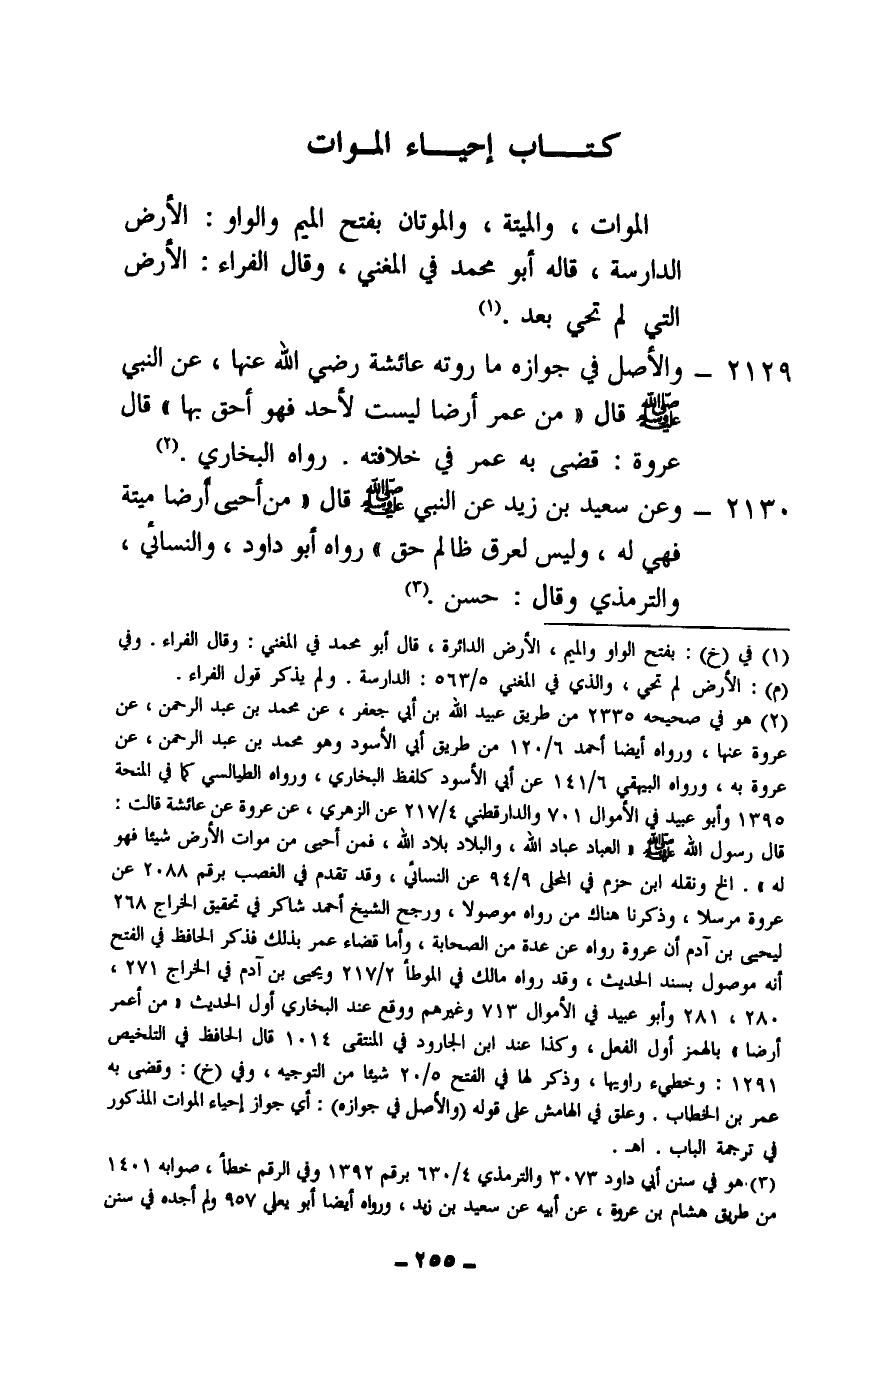 كتـــاب إحيـــاء المـوات
الموات ، والميتة ، والموتان بفتح الميم والواو : الأرض
الدارسة ، قاله أبو محمد في المغني ، وقال الفراء : الأرض
التي لم تحي بعد .(١)
٢١٢٩ – والأصل في جوازه ما روته عائشة رضي الله عنها ، عن النبي
ﷺ قال « من عمر أرضا ليست لأحد فهو أحق بها » قال
عروة : قضى به عمر في خلافته . رواه البخاري .(٢)
٢١٣٠ – وعن سعيد بن زيد عن النبي ﷺ قال « من أحيى أرضا ميتة
فهي له ، وليس لعرق ظالم حق » رواه أبو داود ، والنسائي ،
والترمذي وقال : حسن .(٣)
(١) في (خ) : بفتح الواو والميم ، الأرض الدائرة ، قال أبو محمد في المغني : وقال الفراء . وفي
(م) : الأرض لم تحي ، والذي في المغني ٥٦٣/٥ : الدارسة . ولم يذكر قول الفراء .
(٢) هو في صحيحه ٢٣٣٥ من طريق عبيد الله بن أبي جعفر ، عن محمد بن عبد الرحمن ، عن
عروة عنها ، ورواه أيضا أحمد ١٢٠/٦ من طريق أبي الأسود وهو محمد بن عبد الرحمن ، عن
عروة به ، ورواه البيهقي ١٤١/٦ عن أبي الأسود كلفظ البخاري ، ورواه الطيالسي كما في المنحة
١٣٩٥ وأبو عبيد في الأموال ٧٠١ والدارقطني ٢١٧/٤ عن الزهري ، عن عروة عن عائشة قالت :
قال رسول الله ﷺ « العباد عباد الله ، والبلاد بلاد الله ، فمن أحيى من موات الأرض شيئا فهو
له » . الخ ونقله ابن حزم في المحلى ٩٤/٩ عن النسائي ، وقد تقدم في الغصب برقم ٢٠٨٨ عن
عروة مرسلا ، وذكرنا هناك من رواه موصولا ، ورجح الشيخ أحمد شاكر في تحقيق الخراج ٢٦٨
ليحيى بن آدم أن عروة رواه عن عدة من الصحابة ، وأما قضاء عمر بذلك فذكر الحافظ في الفتح
أنه موصول بسند الحديث ، وقد رواه مالك في الموطأ ٢١٧/٢ ويحيى بن آدم في الخراج ٢٧١ ،
٢٨٠ ، ٢٨١ وأبو عبيد في الأموال ٧١٣ وغيرهم ووقع عند البخاري أول الحديث « من أعمر
أرضا » بالهمز أول الفعل ، وكذا عند ابن الجارود في المنتقى ١٠١٤ قال الحافظ في التلخيص
١٢٩١ : وخطيء راويها ، وذكر لها في الفتح ٢٠/٥ شيئا من التوجيه ، وفي (خ) : وقضى به
عمر بن الخطاب . وعلق في الهامش على قوله (والأصل في جوازه) : أي جواز إحياء الموات المذكور
في ترجمة الباب . اهـ .
(٣) هو في سنن أبي داود ٣٠٧٣ والترمذي ٦٣٠/٤ برقم ١٣٩٢ وفي الرقم خطأ ، صوابه ١٤٠١
من طريق هشام بن عروة ، عن أبيه عن سعيد بن زيد ، ورواه أيضا أبو يعلي ٩٥٧ ولم أجده في سنن
– ٢٥٥ –